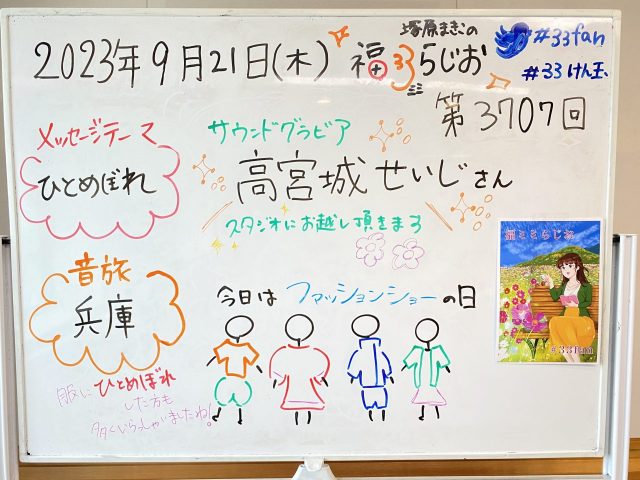 塚原まきこの
2023年9月21日(木) 福33らじお
#33fan
#33けん玉
第3707回
メッセージテーマ
ひとめぼれ
サウンドグラビア
高宮城せいじさん
スタジオにお越し頂きます
音旅
兵庫
今日はファッションショーの日
服にひとめぼれ
した方も
多くいらっしゃいましたね!
#33fan